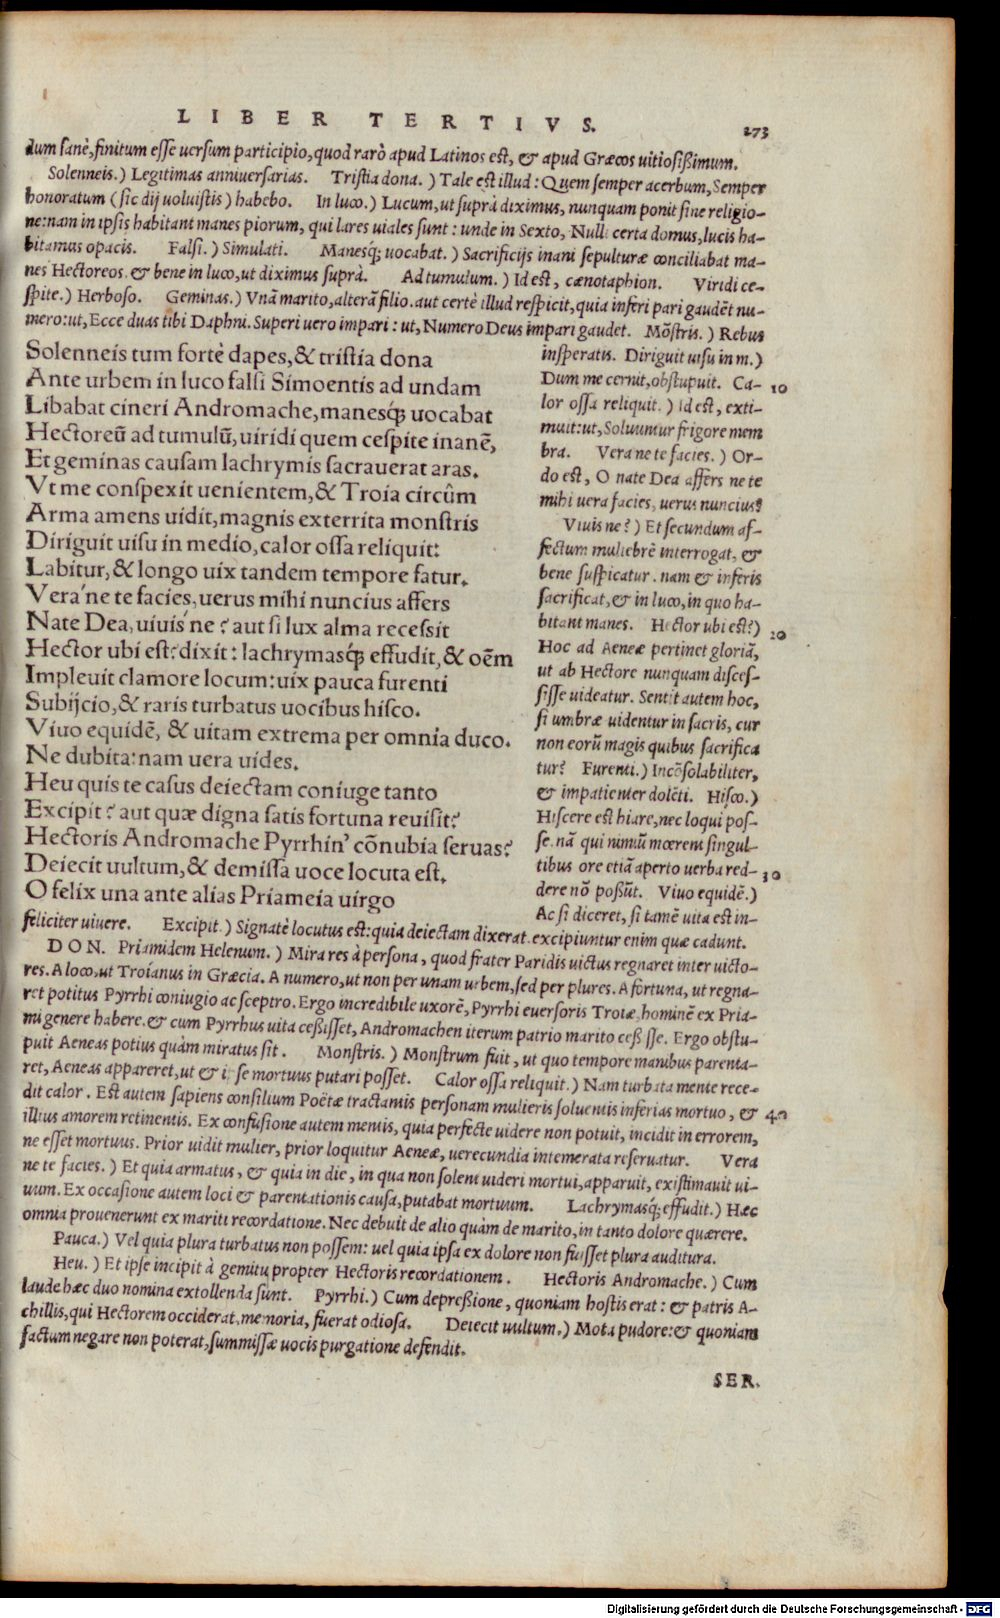 LIBER TERTIVS. 273
dum sanè, finitum esse uersum participio, quod rarò apud Latinos est, & apud Græcos uitiosißimum.
Solenneis.) Legitimas anniuersarias. Tristia dona.) Tale est illud: Quem semper acerbum, Semper
honoratum (sic dij uoluistis) habebo. In luco.) Lucum, ut suprà diximus, nunquam ponit sine religio-
ne: nam in ipsis habitant manes piorum, qui lares uiales sunt: unde in Sexto, Nulli certa domus, lucis ha-
bitamus opacis. Falsi.) Simulati. Manesq́; uocabat.) Sacrificijs inani sepulturæ conciliabat ma-
nes Hectoreos. & bene in luco, ut diximus suprà. Ad tumulum.) Id est, cænotaphion. Viridi ce-
spite.) Herboso. Geminas.) Vnā marito, alterā filio. aut certè illud respicit, quia inferi pari gaudēt nu-
mero: ut, Ecce duas tibi Daphni. Superi uero impari: ut, Numero Deus impari gaudet. Mōstris.) Rebus
Solenneis tum fortè dapes, & tristia dona
Ante urbem in luco falsi Simoentis ad undam
Libabat cineri Andromache, manesq́; uocabat
Hectoreū ad tumulū, uiridi quem cespite inanē,
Et geminas causam lachrymis sacrauerat aras.
Vt me conspexit uenientem, & Troia circûm
Arma amens uidit, magnis exterrita monstris
Diriguit uisu in medio, calor ossa reliquit:
Labitur, & longo uix tandem tempore fatur.
Vera'ne te facies, uerus mihi nuncius affers
Nate Dea, uiuis'ne? aut si lux alma recessit
Hector ubi est? dixit: lachrymasq́; effudit, & oēm
Impleuit clamore locum: uix pauca furenti
Subijcio, & raris turbatus uocibus hisco.
Viuo equidē, & uitam extrema per omnia duco.
Ne dubita: nam uera uides.
Heu quis te casus deiectam coniuge tanto
Excipit? aut quæ digna satis fortuna reuisit?
Hectoris Andromache Pyrrhin' cōnubia seruas?
Deiecit uultum, & demissa uoce locuta est.
O felix una ante alias Priameia uirgo
insperatis. Diriguit uisu in m.)
Dum me cernit, obstupuit. Ca- 10
lor ossa reliquit.) Id est, exti-
muit: ut, Soluuntur frigore mem
bra. Vera ne te facies.) Or-
do est, O nate Dea affers ne te
mihi uera facies, uerus nuncius?
Viuis ne?) Et secundum af-
fectum muliebrē interrogat, &
bene suspicatur. nam & inferis
sacrificat, & in luco, in quo ha-
bitant manes. Hector ubi est?) 20
Hoc ad Aeneæ pertinet gloriā,
ut ab Hectore nunquam disces-
sisse uideatur. Sentit autem hoc,
si umbræ uidentur in sacris, cur
non eorū magis quibus sacrifica
tur? Furenti.) Incōsolabiliter,
& impatienter dolēti. Hisco.)
Hiscere est hiare, nec loqui pos-
se. nā qui nimiū mœrent singul-
tibus ore etiā aperto uerba red- 30
dere nō possūt. Viuo equidē.)
Ac si diceret, si tamē uita est in-
feliciter uiuere. Excipit.) Signatè locutus est: quia deiectam dixerat. excipiuntur enim quæ cadunt.
DON. Priamidem Helenum.) Mira res à persona, quod frater Paridis uictus regnaret inter uicto-
res. A loco, ut Troianus in Græcia. A numero, ut non per unam urbem, sed per plures. A fortuna, ut regna-
ret potitus Pyrrhi coniugio ac sceptro. Ergo incredibile uxorē, Pyrrhi euersoris Troiæ, hominē ex Pria-
mi genere habere. & cum Pyrrhus uita ceßisset, Andromachen iterum patrio marito ceßisse. Ergo obstu-
puit Aeneas potius quàm miratus sit. Monstris.) Monstrum fuit, ut quo tempore manibus parenta-
ret, Aeneas appareret, ut & ipse mortuus putari posset. Calor ossa reliquit.) Nam turbata mente rece-
dit calor. Est autem sapiens consilium Poëtæ tractantis personam mulieris soluentis inferias mortuo, & 40
illius amorem retinentis. Ex confusione autem mentis, quia perfecte uidere non potuit, incidit in errorem,
ne esset mortuus. Prior uidit mulier, prior loquitur Aeneæ, uerecundia intemerata reseruatur. Vera
ne te facies.) Et quia armatus, & quia in die, in qua non solent uideri mortui, apparuit, existimauit ui-
uum. Ex occasione autem loci & parentationis causa, putabat mortuum. Lachrymasq́; effudit.) Hæc
omnia prouenerunt ex mariti recordatione. Nec debuit de alio quàm de marito, in tanto dolore quærere.
Pauca.) Vel quia plura turbatus non possem: uel quia ipsa ex dolore non fuisset plura auditura.
Heu.) Et ipse incipit à gemitu propter Hectoris recordationem. Hectoris Andromache.) Cum
laude hæc duo nomina extollenda sunt. Pyrrhi.) Cum depreßione, quoniam hostis erat: & patris A-
chillis, qui Hectorem occiderat, memoria, fuerat odiosa. Deiecit uultum.) Mota pudore: & quoniam
factum negare non poterat, summissæ uocis purgatione defendit.
SER.
Digitalisierung gefördert durch die Deutsche Forschungsgemeinschaft - DFG